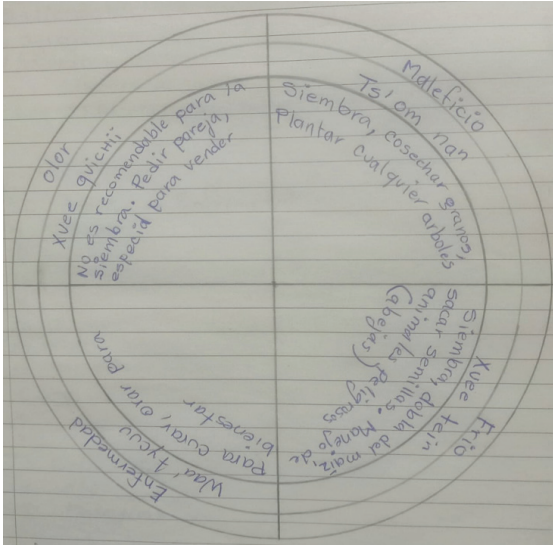 Maleficio
Ts'om nan
Siembra, cosechar granos,
Plantar cualquier arboles
Frio
Xvee tein
Siembra, dobla del maiz, de
sacar semillas. Manejo de
animales peligrosos
(abejas)
Enfermedad
Waa' tycuu
Para curar, orar para
bienestar
olor
Xvee quichii
No es recomendable para la
siembra. Pedir pareja,
especid para vender